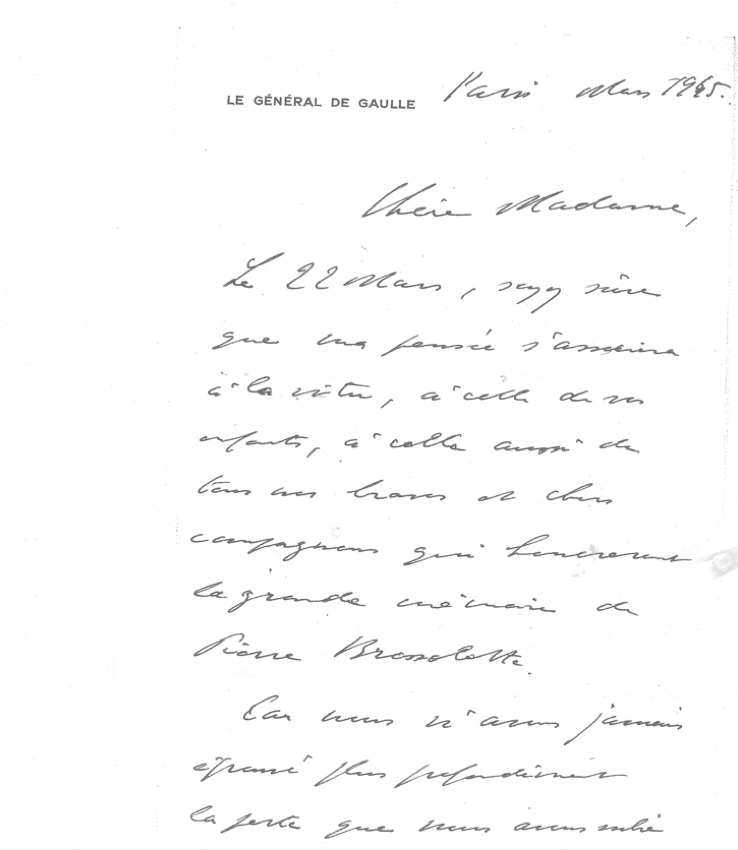 LE GÉNÉRAL DE GAULLE
Paris Mars 1945.
Chère Madame,
Le 22 Mars, soyez sûre
que ma pensée s'associera
à la vôtre, à celle de vos
enfants, à celle aussi de
tous nos braves et chers
compagnons qui honoreront
la grande mémoire de
Pierre Brossolette.
Car nous n'avons jamais
éprouvé plus profondément
la perte que nous avons subie